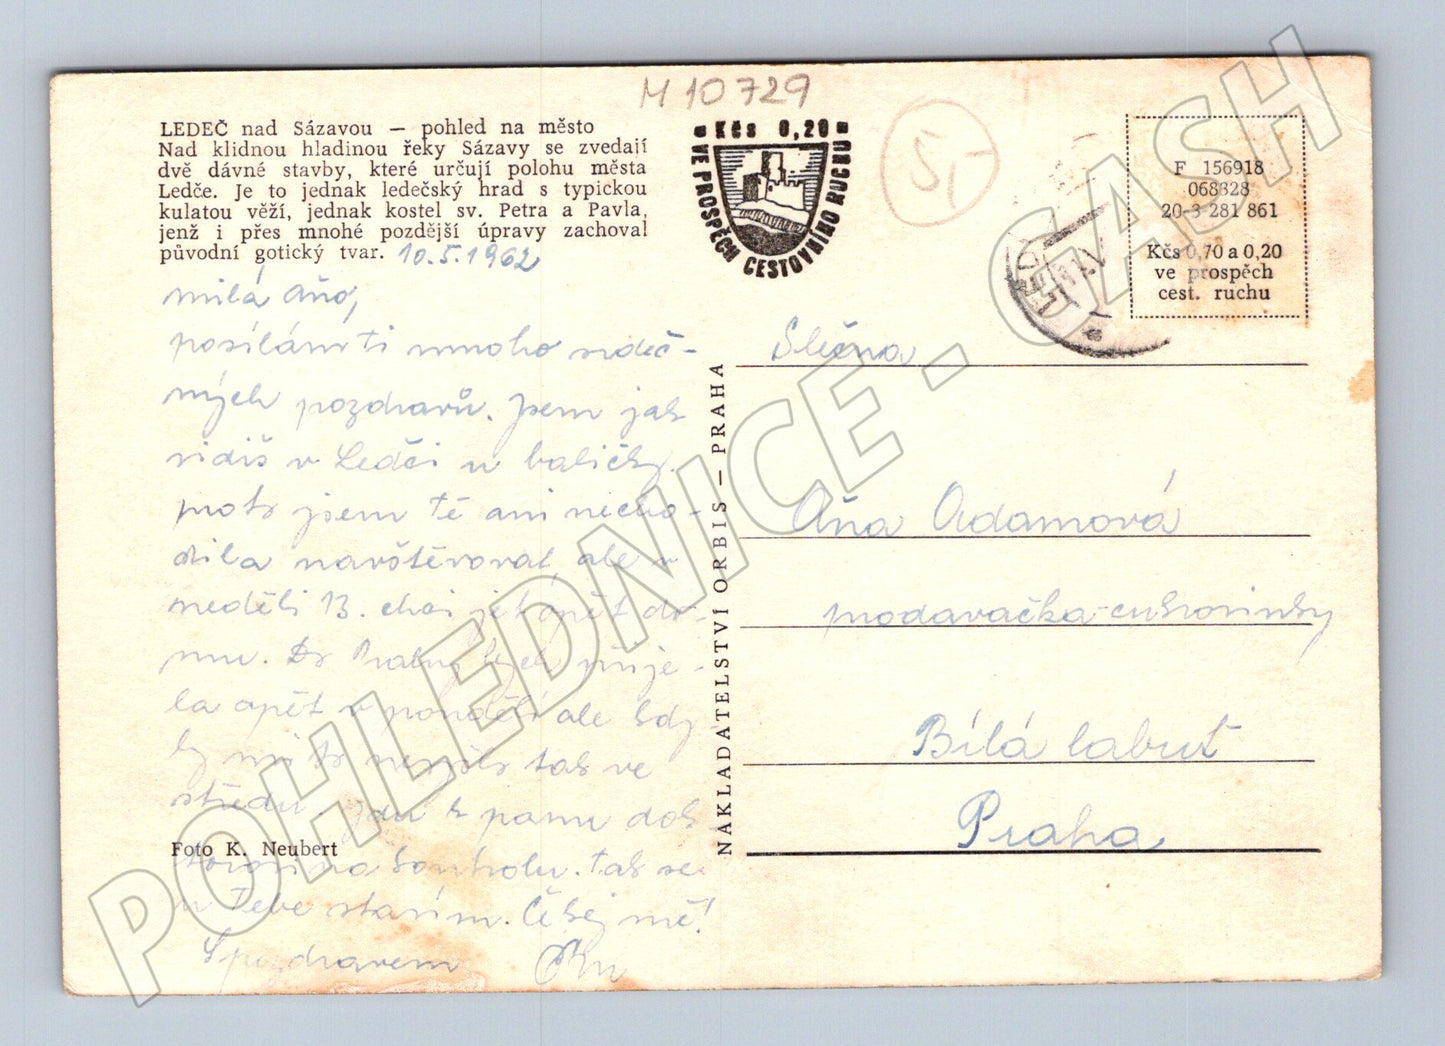 M 10729
LEDEČ nad Sázavou — pohled na město
Nad klidnou hladinou řeky Sázavy se zvedají
dvě dávné stavby, které určují polohu města
Ledče. Je to jednak ledečský hrad s typickou
kulatou věží, jednak kostel sv. Petra a Pavla,
jenž i přes mnohé pozdější úpravy zachoval
původní gotický tvar. 10.5.1962
milá Aňo,
posílám ti mnoho srdeč-
ných pozdravů. Jsem jak
vidíš v Ledči u babičky.
proto jsem tě ani necho-
dila navštěvovat, ale v
neděli 13. chci jet opět do-
mu. Do Prahy bych přije-
la opět v pondělí ale kdy
by mi to nevyšlo tak ve
středu jdu k panu dok
torovi na kontrolu. tak se
u Tebe stavím. Čekej mě!
S pozdravem
Foto K. Neubert
Kčs 0,20
VE PROSPĚCH CESTOVNÍHO RUCHU
Š,-
LEDEČ
F 156918
068328
20-3 281 861
Kčs 0,70 a 0,20
ve prospěch
cest. ruchu
NAKLADATELSTVÍ ORBIS — PRAHA
Slečna
Aňa Adamová
prodavačka-cukrovinky
Bílá labuť
Praha
POHLEDNICE - GASH